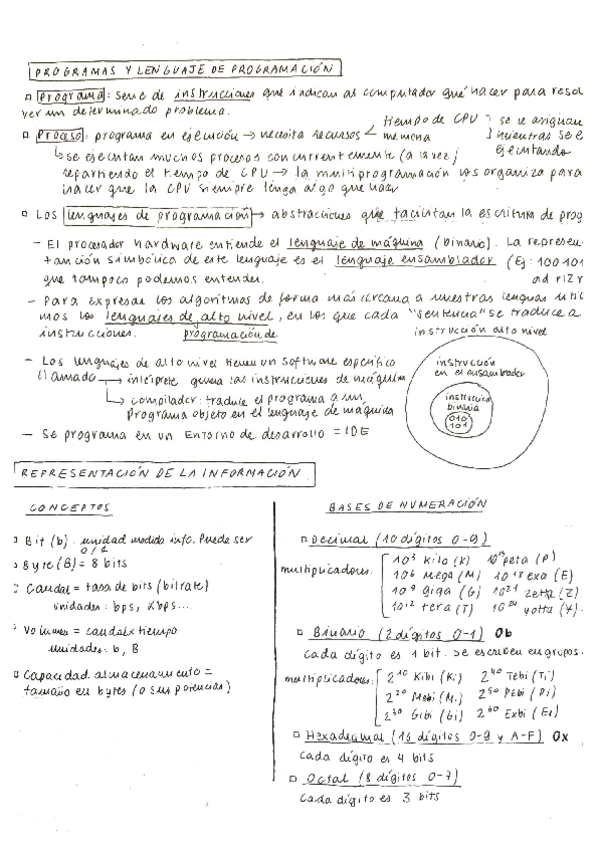 PROGRAMAS Y LENGUAJE DE PROGRAMACIÓN
Programa: Serie de instrucciones que indican al computador qué hacer para resol
ver un determinado problema.
Proceso: programa en ejecución → necesita recursos < tiempo de CPU } se le asignan
memoria mientras se e
ejecutando
↳ se ejecutan muchos procesos concurrentemente (a la vez)
repartiendo el tiempo de CPU → la multiprogramación los organiza para
hacer que la CPU siempre tenga algo que hacer
Los lenguajes de programación → abstracciones que facilitan la escritura de prog
- El procesador hardware entiende el lenguaje de máquina (binario). La represen-
tanción simbólica de este lenguaje es el lenguaje ensamblador (Ej: 100101
que tampoco podemos entender.
- Para expresar los algoritmos de forma más cercana a nuestras lenguas utili
mos los lenguajes de alto nivel, en los que cada "sentencia" se traduce a
instrucciones. programación de
instrucción alto nivel
- Los lenguajes de alto nivel tienen un software específico
llamado → intérprete genera las instrucciones de máquina
↳ compilador: traduce el programa a un
Programa objeto en el lenguaje de máquina
- Se programa en un Entorno de desarrollo = IDE
instrucción
en el ensamblador
instrucción
binaria
010
101
REPRESENTACIÓN DE LA INFORMACIÓN
CONCEPTOS
Bit (b). unidad medida info. Puede ser
0 / 1
Byte (B) = 8 bits
Caudal = tasa de bits (bitrate)
unidades: bps, kbps...
Volumen = caudal x tiempo
unidades: b, B
Capacidad almacenamiento =
tamaño en bytes (o sus potencias)
BASES DE NUMERACIÓN
Decimal (10 dígitos 0-9)
multiplicadores:
10³ kilo (K) 10¹⁵ peta (P)
10⁶ Mega (M) 10¹⁸ exa (E)
10⁹ giga (G) 10²¹ zetta (Z)
10¹² tera (T) 10²⁴ yotta (Y).
Binario (2 dígitos 0-1) 0b
Cada dígito es 1 bit. Se escriben en grupos.
multiplicadores:
2¹⁰ Kibi (Ki) 2⁴⁰ Tebi (Ti)
2²⁰ Mebi (Mi) 2⁵⁰ Pebi (Pi)
2³⁰ Gibi (Gi) 2⁶⁰ Exbi (Ei)
Hexadecimal (16 dígitos 0-9 y A-F) 0x
Cada dígito es 4 bits
Octal (8 dígitos 0-7)
Cada dígito es 3 bits